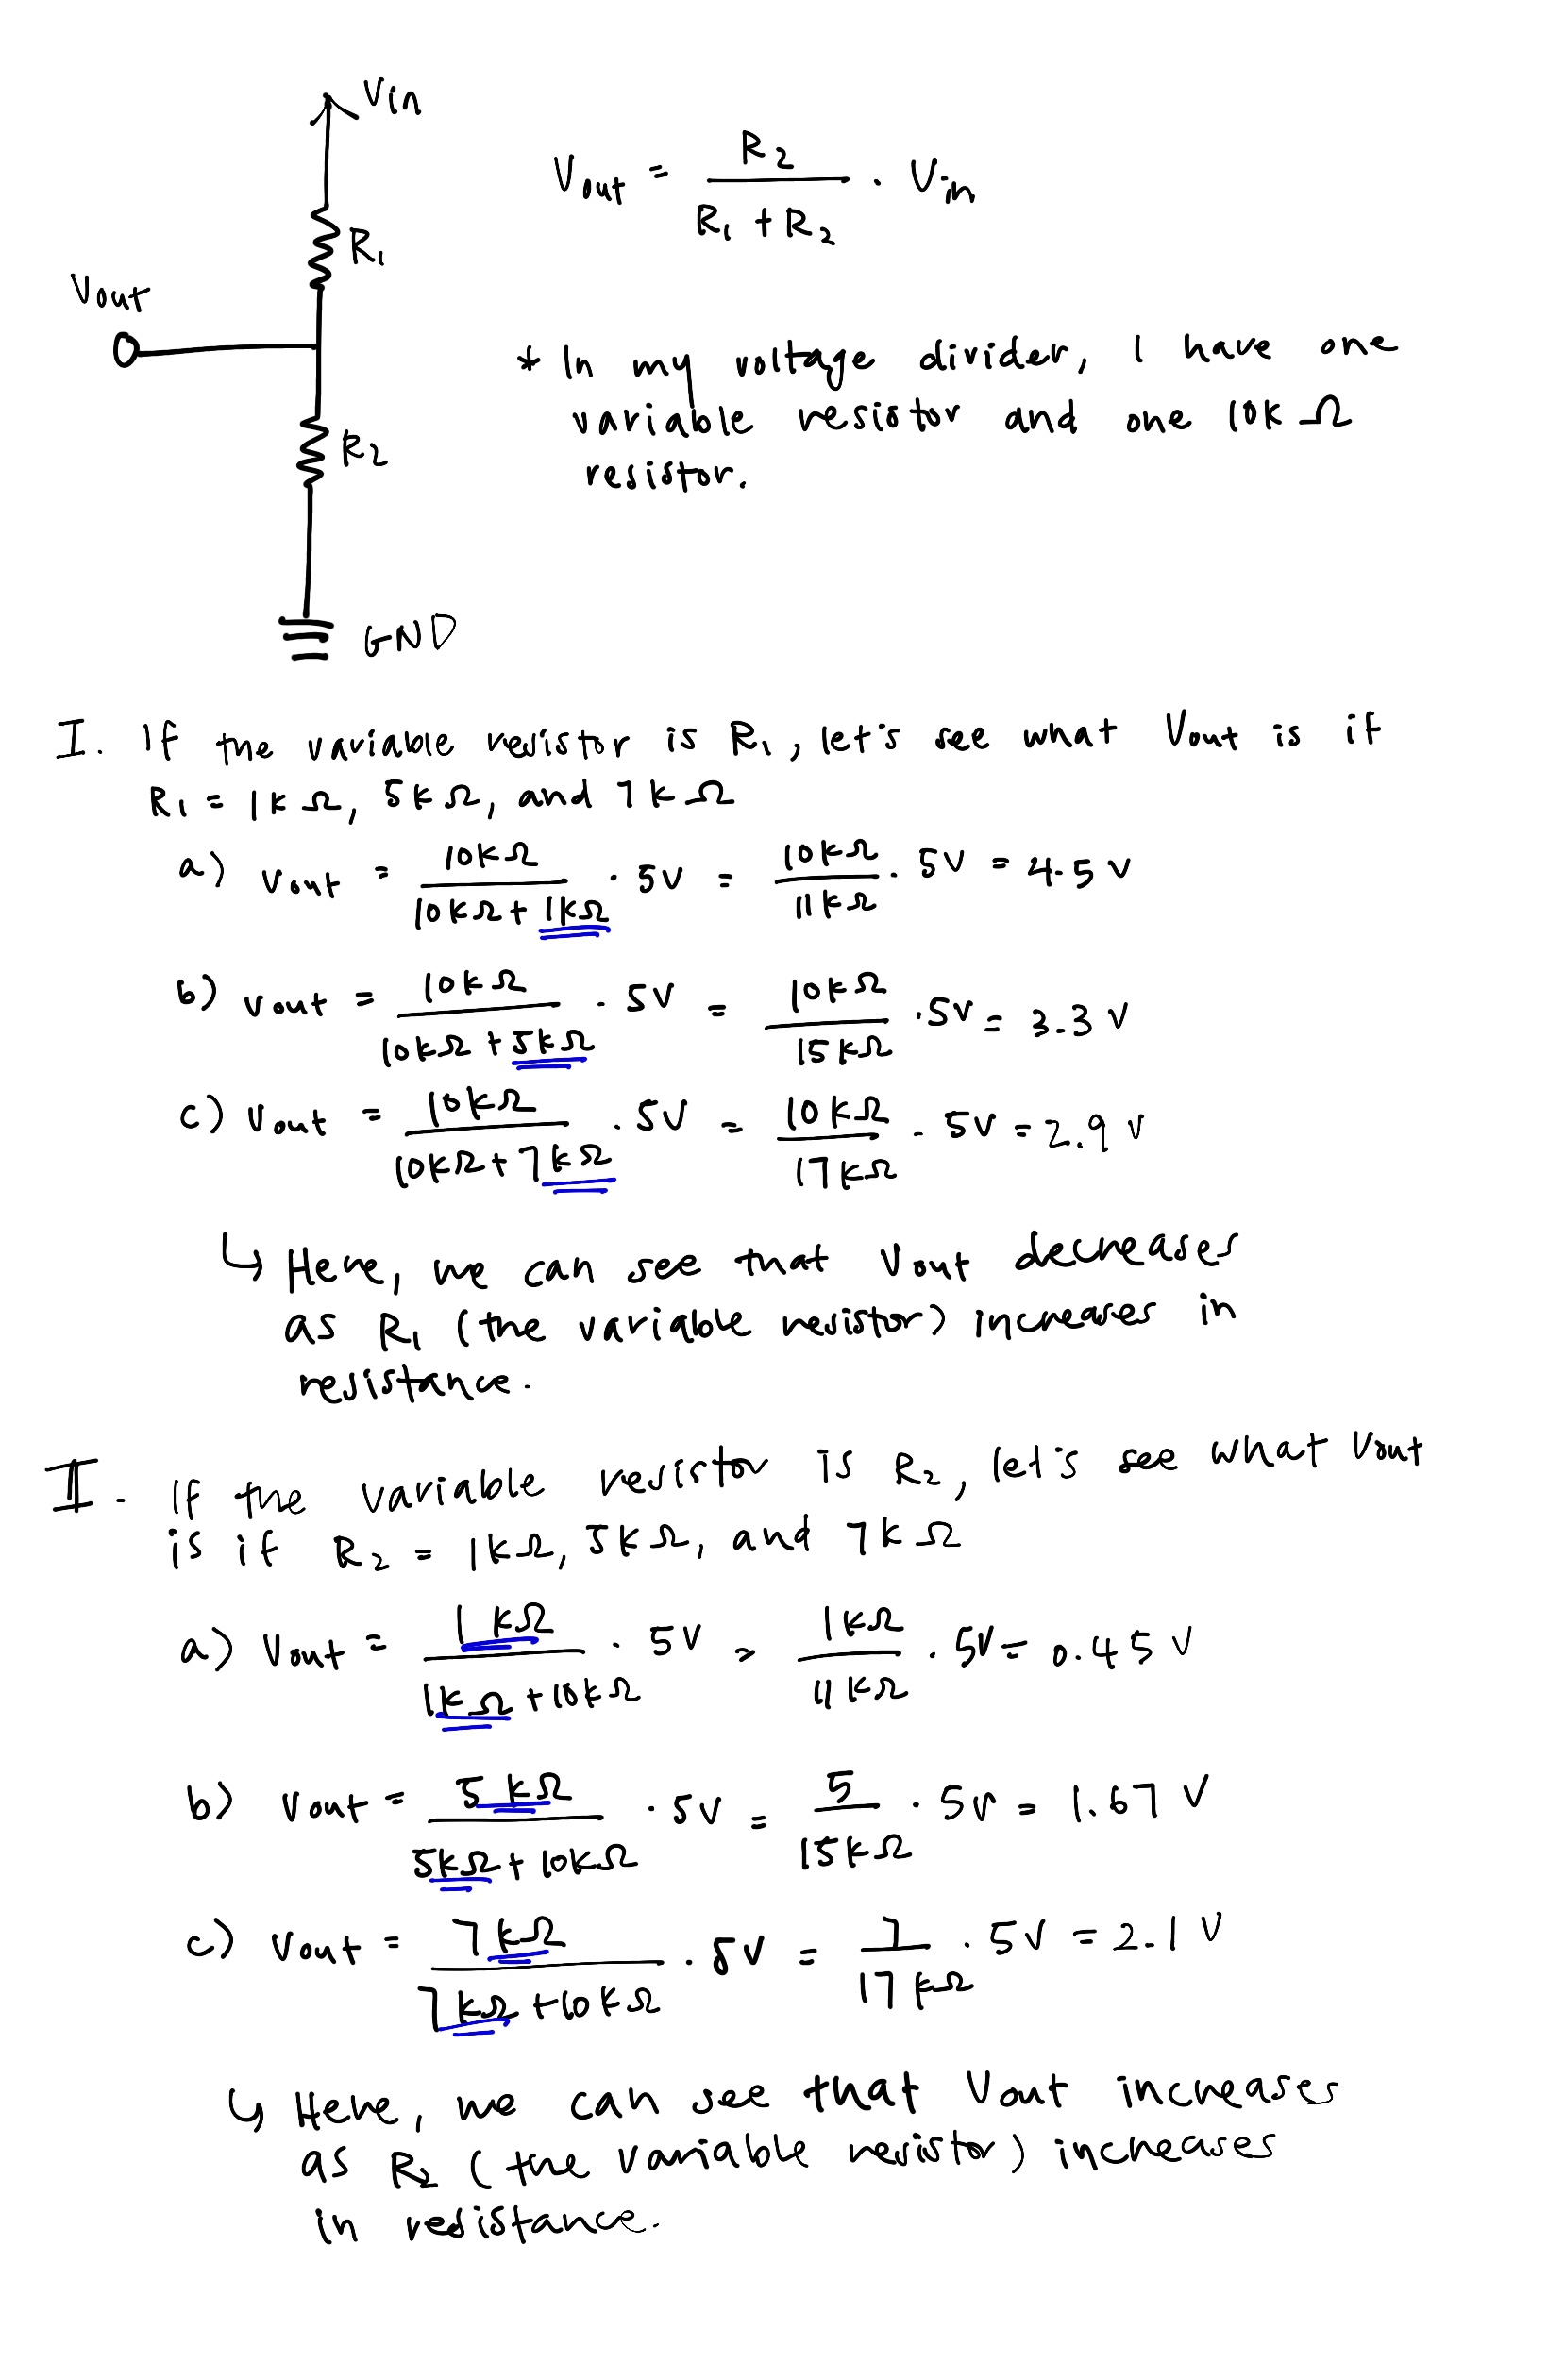 Vin
Vout = R2 / (R1 + R2) · Vin
R1
Vout
* In my voltage divider, I have one
variable resistor and one 10k Ω
R2
resistor.
GND
I. If the variable resistor is R1, let's see what Vout is if
R1 = 1k Ω, 5k Ω, and 7k Ω
a) Vout = 10kΩ / (10kΩ + 1kΩ) · 5V = 10kΩ / 11kΩ · 5V = 4.5 V
b) Vout = 10kΩ / (10kΩ + 5kΩ) · 5V = 10kΩ / 15kΩ · 5V = 3.3 V
c) Vout = 10kΩ / (10kΩ + 7kΩ) · 5V = 10kΩ / 17kΩ · 5V = 2.9 V
↳ Here, we can see that Vout decreases
as R1 (the variable resistor) increases in
resistance.
II. If the variable resistor is R2, let's see what Vout
is if R2 = 1kΩ, 5kΩ, and 7kΩ
a) Vout = 1kΩ / (1kΩ + 10kΩ) · 5V = 1kΩ / 11kΩ · 5V = 0.45 V
b) Vout = 5kΩ / (5kΩ + 10kΩ) · 5V = 5 / 15kΩ · 5V = 1.67 V
c) Vout = 7kΩ / (7kΩ + 10kΩ) · 5V = 7 / 17kΩ · 5V = 2.1 V
↳ Here, we can see that Vout increases
as R2 (the variable resistor) increases
in resistance.